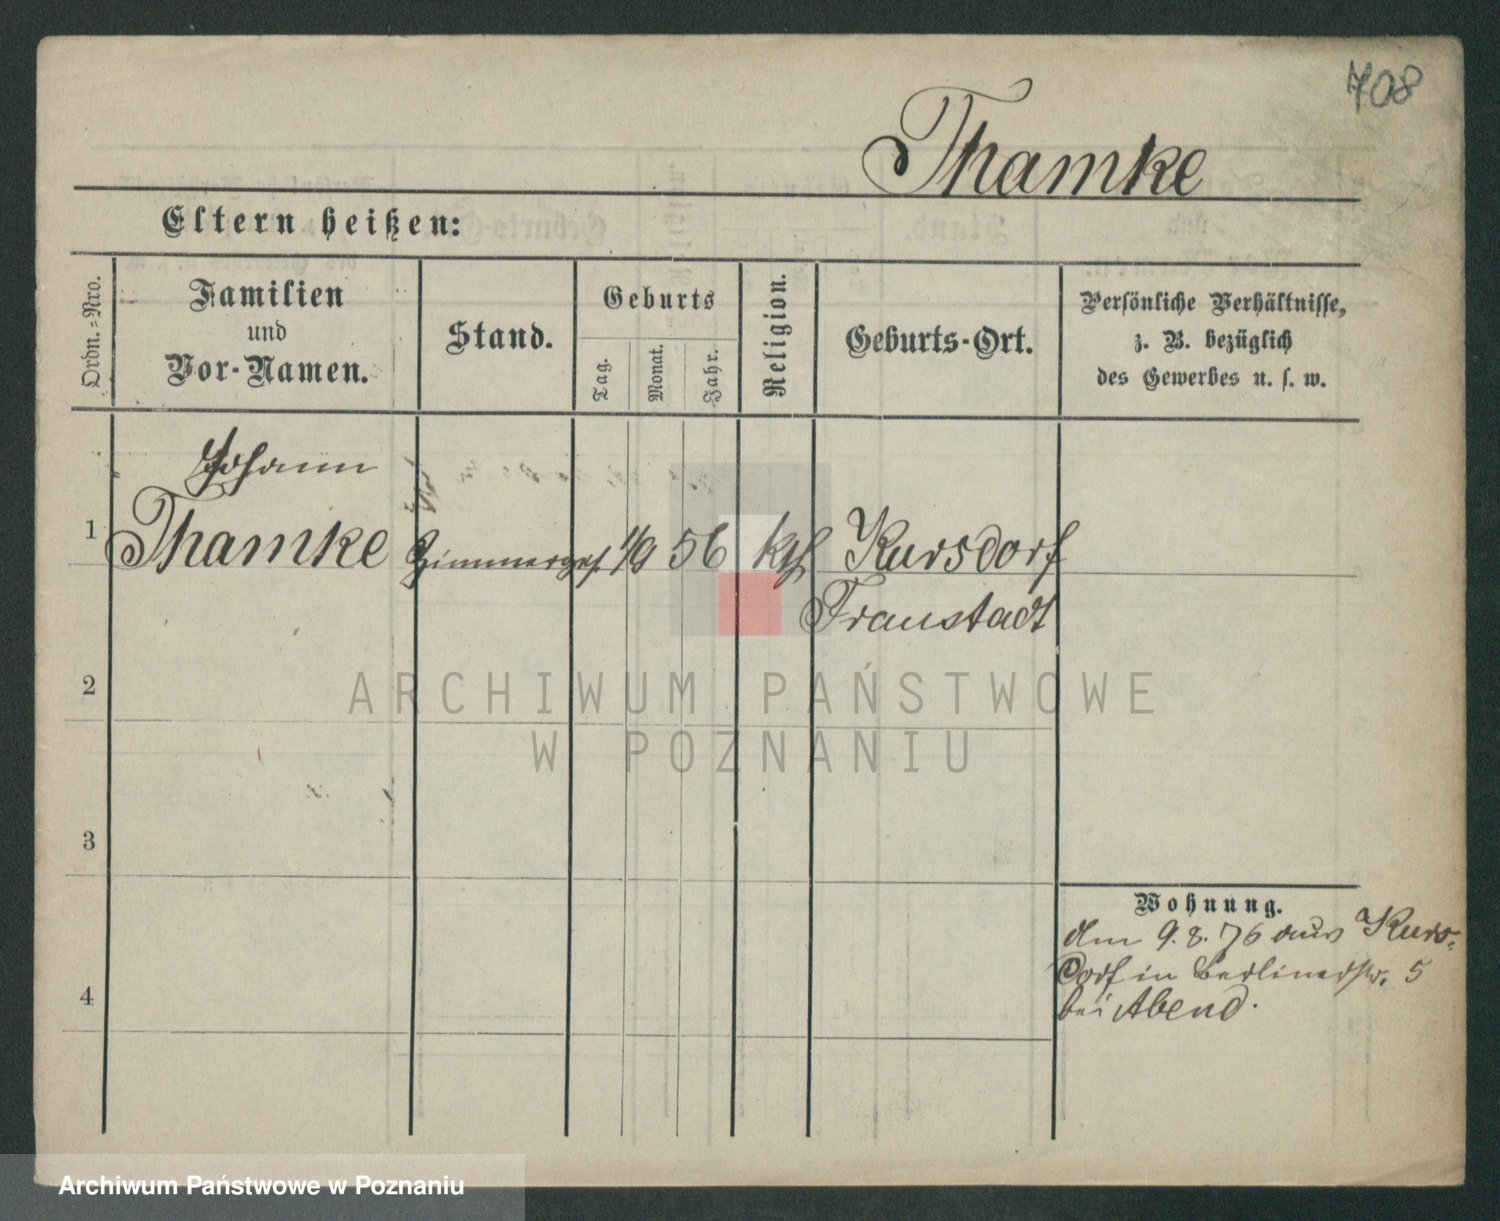 708
Thamke
Eltern heißen:
Ordn.=Nro.
Familien
und
Vor-Namen.
Stand.
Geburts
Tag.
Monat.
Jahr.
Religion.
Geburts-Ort.
Persönliche Verhältnisse,
z. B. bezüglich
des Gewerbes u. s. w.
Johann
1 Thamke Zimmerges. 1/9 56 kth Kursdorf
Fraustadt
2
ARCHIWUM PAŃSTWOWE
W POZNANIU
3
Wohnung.
den 9.8.76 aus Kurs-
dorf in Berlinerstr. 5
4
bei Abend.
Archiwum Państwowe w Poznaniu